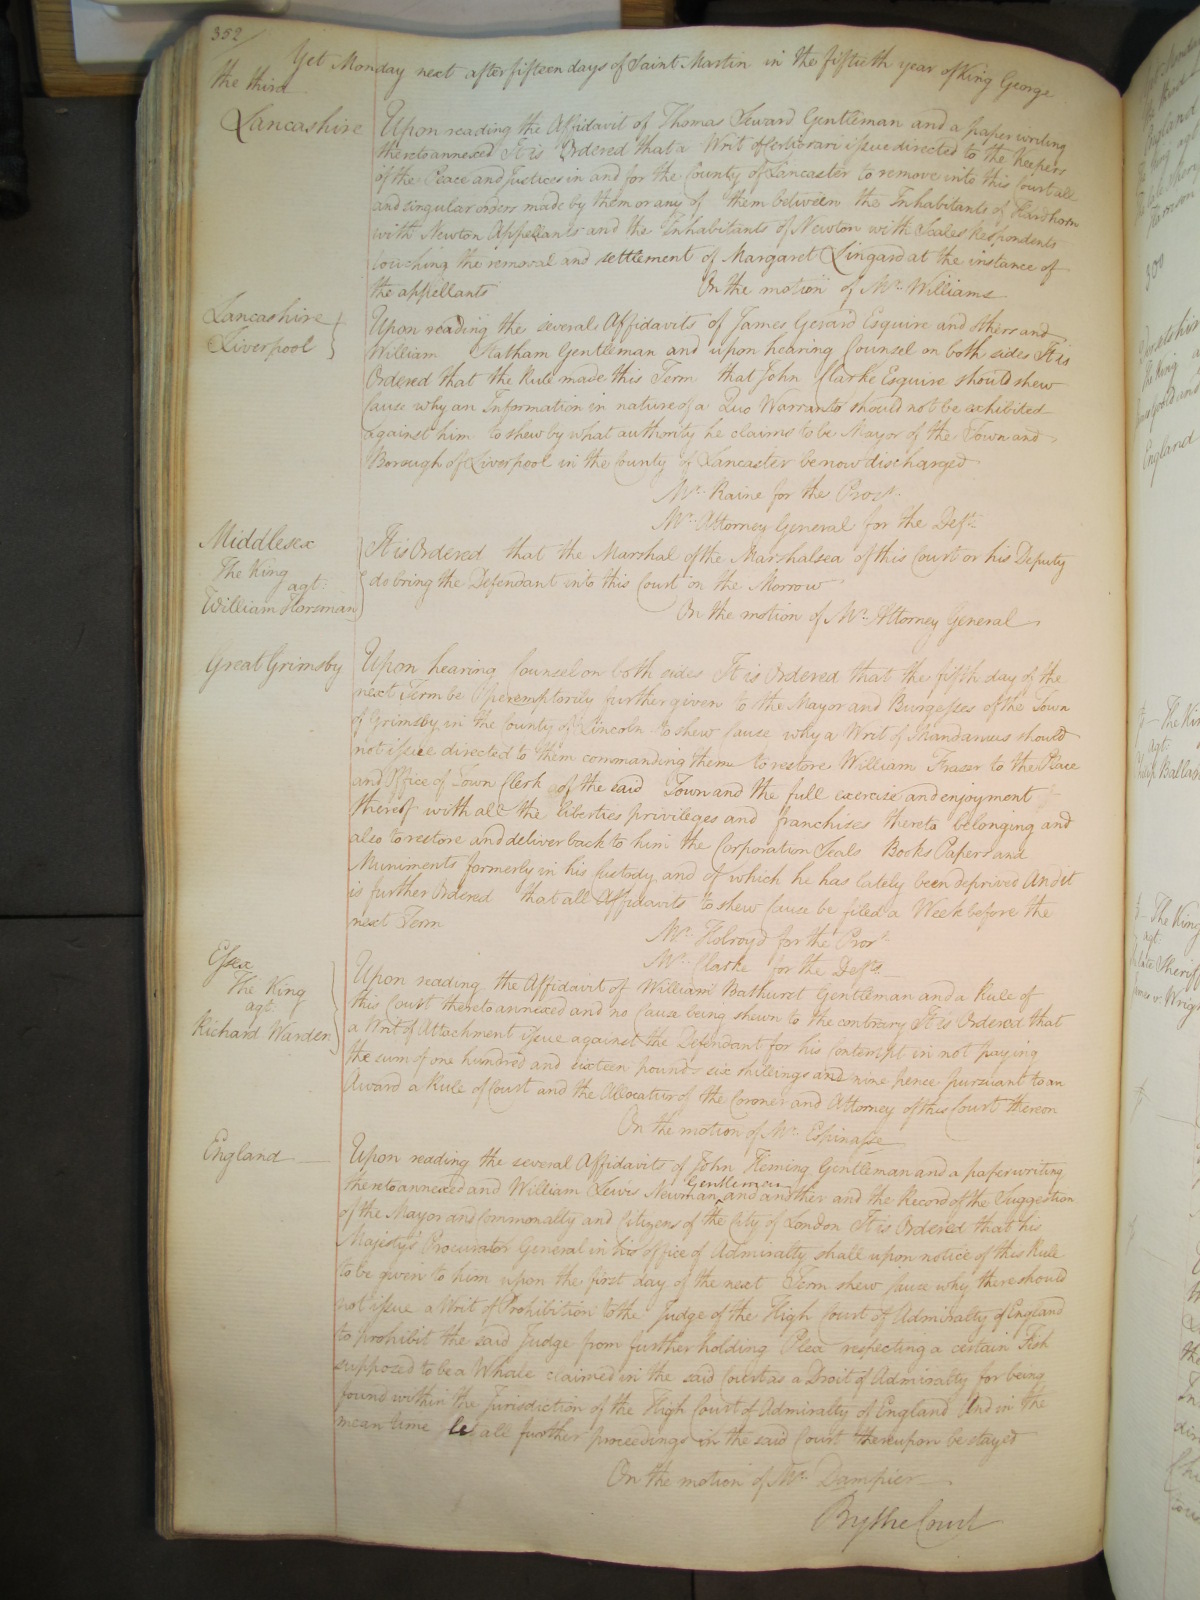 352
Yet Monday next after fifteen days of Saint Martin in the fiftieth year of King George
the third
Lancashire
Upon reading the Affidavit of Thomas Seward Gentleman and a paper writing
thereto annexed It is Ordered that a Writ of Certiorari issue directed to the Keepers
of the Peace and Justices in and for the County of Lancaster to remove into this Court all
and singular orders made by them or any of them between the Inhabitants of Hardhorn
with Newton Appellants and the Inhabitants of Newton with Scales Respondents
touching the removal and settlement of Margaret Lingard at the instance of
the appellants On the motion of Mr. Williams
Lancashire
Liverpool
Upon reading the several Affidavits of James Gerard Esquire and others and
William Statham Gentleman and upon hearing Counsel on both sides It is
Ordered that the Rule made this Term that John Clarke Esquire should shew
Cause why an Information in nature of a Quo Warranto should not be exhibited
against him to shew by what authority he claims to be Mayor of the Town and
Borough of Liverpool in the County of Lancaster be now discharged
Mr. Raine for the Prosr.
Mr. Attorney General for the Deft.
Middlesex
The King
agt.
William Horsman
It is Ordered that the Marshal of the Marshalsea of this Court or his Deputy
do bring the Defendant into this Court on the Morrow
On the motion of Mr. Attorney General
Great Grimsby
Upon hearing Counsel on both sides It is Ordered that the fifth day of the
next Term be peremptorily further given to the Mayor and Burgesses of the Town
of Grimsby in the County of Lincoln to shew Cause why a Writ of Mandamus should
not issue directed to them commanding them to restore William Fraser to the Place
and Office of Town Clerk of the said Town and the full exercise and enjoyment
thereof with all the liberties privileges and franchises thereto belonging and
also to restore and deliver back to him the Corporation Seals Books Papers and
Muniments formerly in his Custody and of which he has lately been deprived And it
is further Ordered that all Affidavits to shew Cause be filed a Week before the
next Term
Mr. Holroyd for the Prosr.
Mr. Clarke for the Defts.
Essex
The King
agt.
Richard Warden
Upon reading the Affidavit of William Bathurst Gentleman and a Rule of
this Court thereto annexed and no Cause being shewn to the contrary It is Ordered that
a Writ of Attachment issue against the Defendant for his Contempt in not paying
the sum of one hundred and sixteen pounds six shillings and nine pence pursuant to an
Award a Rule of Court and the Allocatur of the Coroner and Attorney of this Court thereon
On the motion of Mr. Espinasse
England
Upon reading the several Affidavits of John Fleming Gentleman and a paper writing
thereto annexed and William Lewis Newman Gentleman and another and the Record of the Suggestion
of the Mayor and Commonalty and Citizens of the City of London It is Ordered that his
Majesty's Procurator General in his office of Admiralty shall upon notice of this Rule
to be given to him upon the first day of the next Term shew Cause why there should
not issue a Writ of Prohibition to the Judge of the High Court of Admiralty of England
to prohibit the said Judge from further holding Plea respecting a certain Fish
supposed to be a Whale claimed in the said Court as a Droit of Admiralty for being
found within the Jurisdiction of the High Court of Admiralty of England And in the
mean time let all further proceedings in the said Court thereupon be stayed
On the motion of Mr. Dampier
By the Court